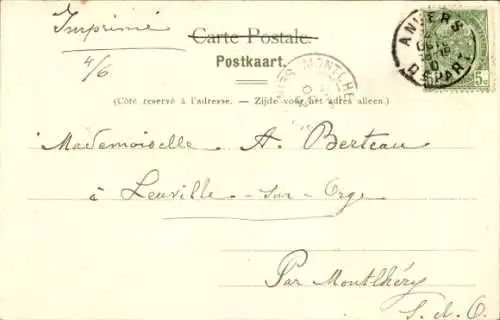 Imprimé
4/6
Carte Postale.
Postkaart.
ANVERS
DÉPART
5c
MONTLHE
(Côté réservé à l'adresse. — Zijde voor het adres alleen.)
Mademoiselle A. Berteau
à Leuville-sur-Orge
Par Montlhéry
S. et O.